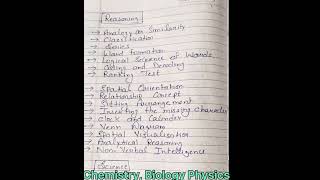 Reasoning
→ Analogy or Similarity
→ Classification
→ Series
→ Word formation
→ Logical Science of Words
→ Coding and Decoding
→ Ranking Test
→ Spatial Orientation
→ Relationship Concept
→ Sitting Arrangement
→ Inserting the missing Character
→ Clock and Calinder
→ Venn Diagram
→ Spatial Visualisation
→ Analytical Reasoning
→ Non-Verbal Intelligence
Science
Chemistry, Biology Physics